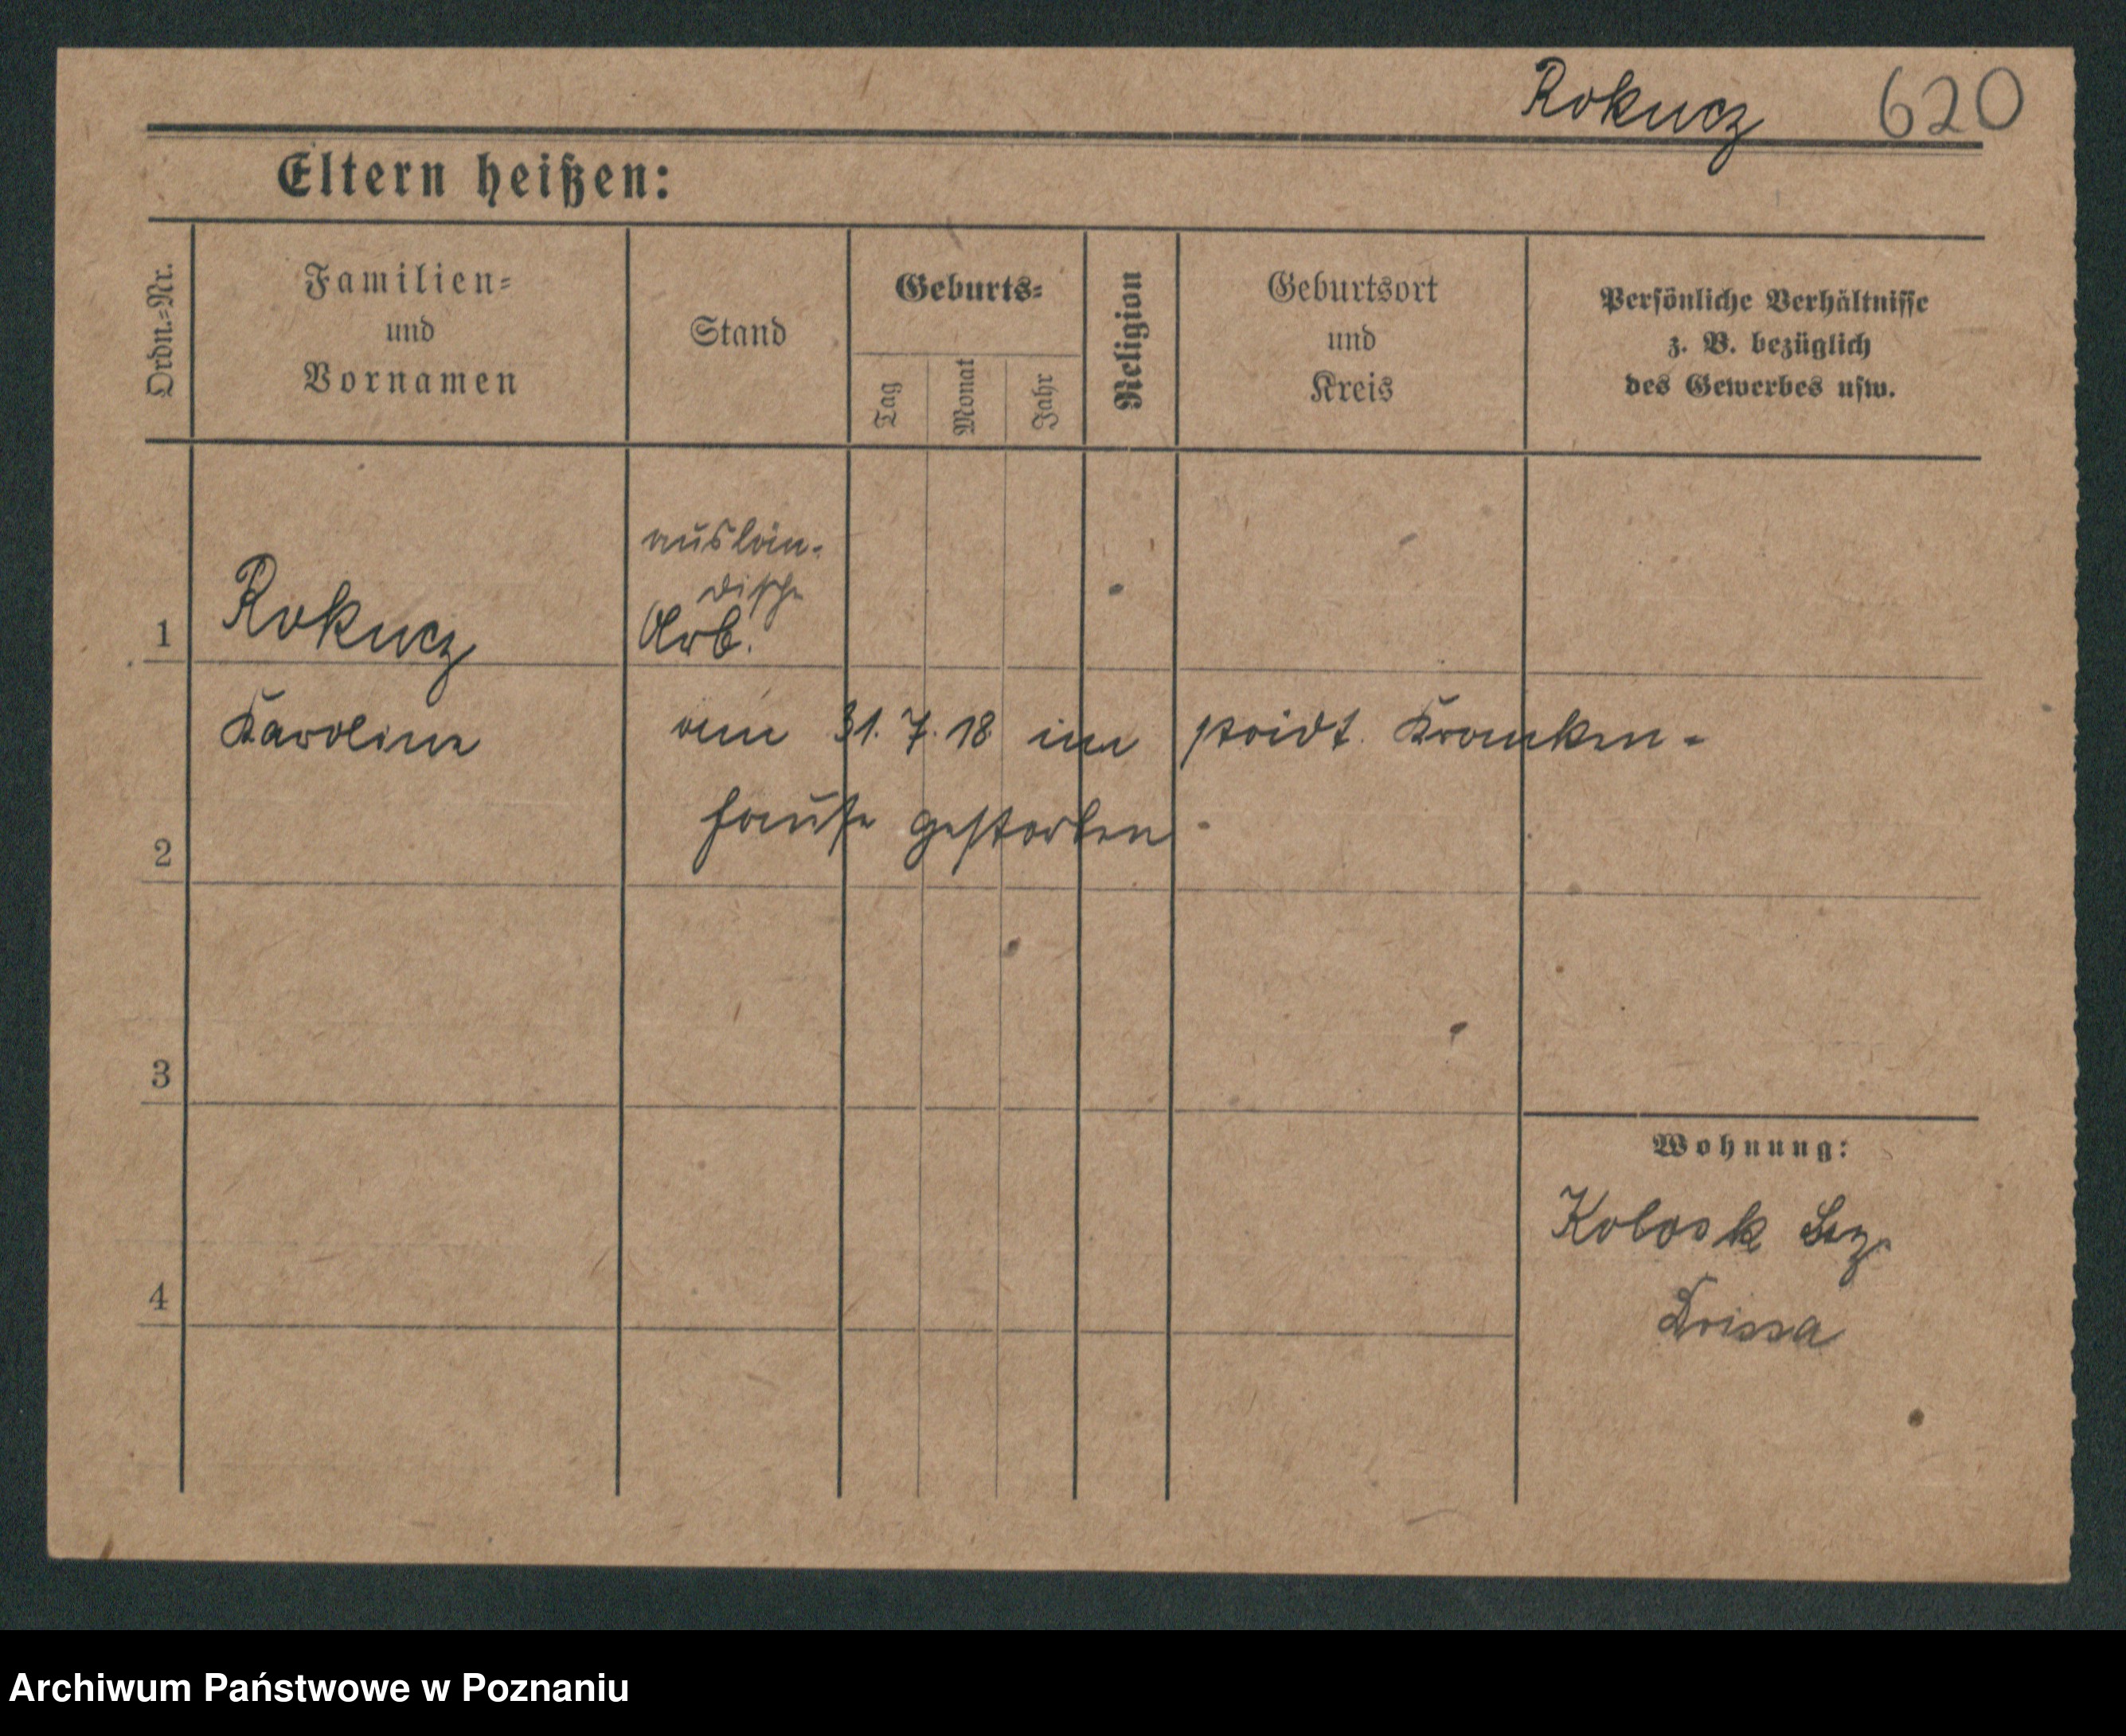 Rokucz 620
Eltern heißen:
Ordn.-Nr.
Familien-
und
Vornamen
Stand
Geburts-
Tag
Monat
Jahr
Religion
Geburtsort
und
Kreis
Persönliche Verhältnisse
z. B. bezüglich
des Gewerbes usw.
auslän-
dische
1 Rokucz Arb.
Karoline am 31.7.18 im städt. Kranken-
hause gestorben
2
3
Wohnung:
Kolosk Bez.
4
Drissa
Archiwum Państwowe w Poznaniu